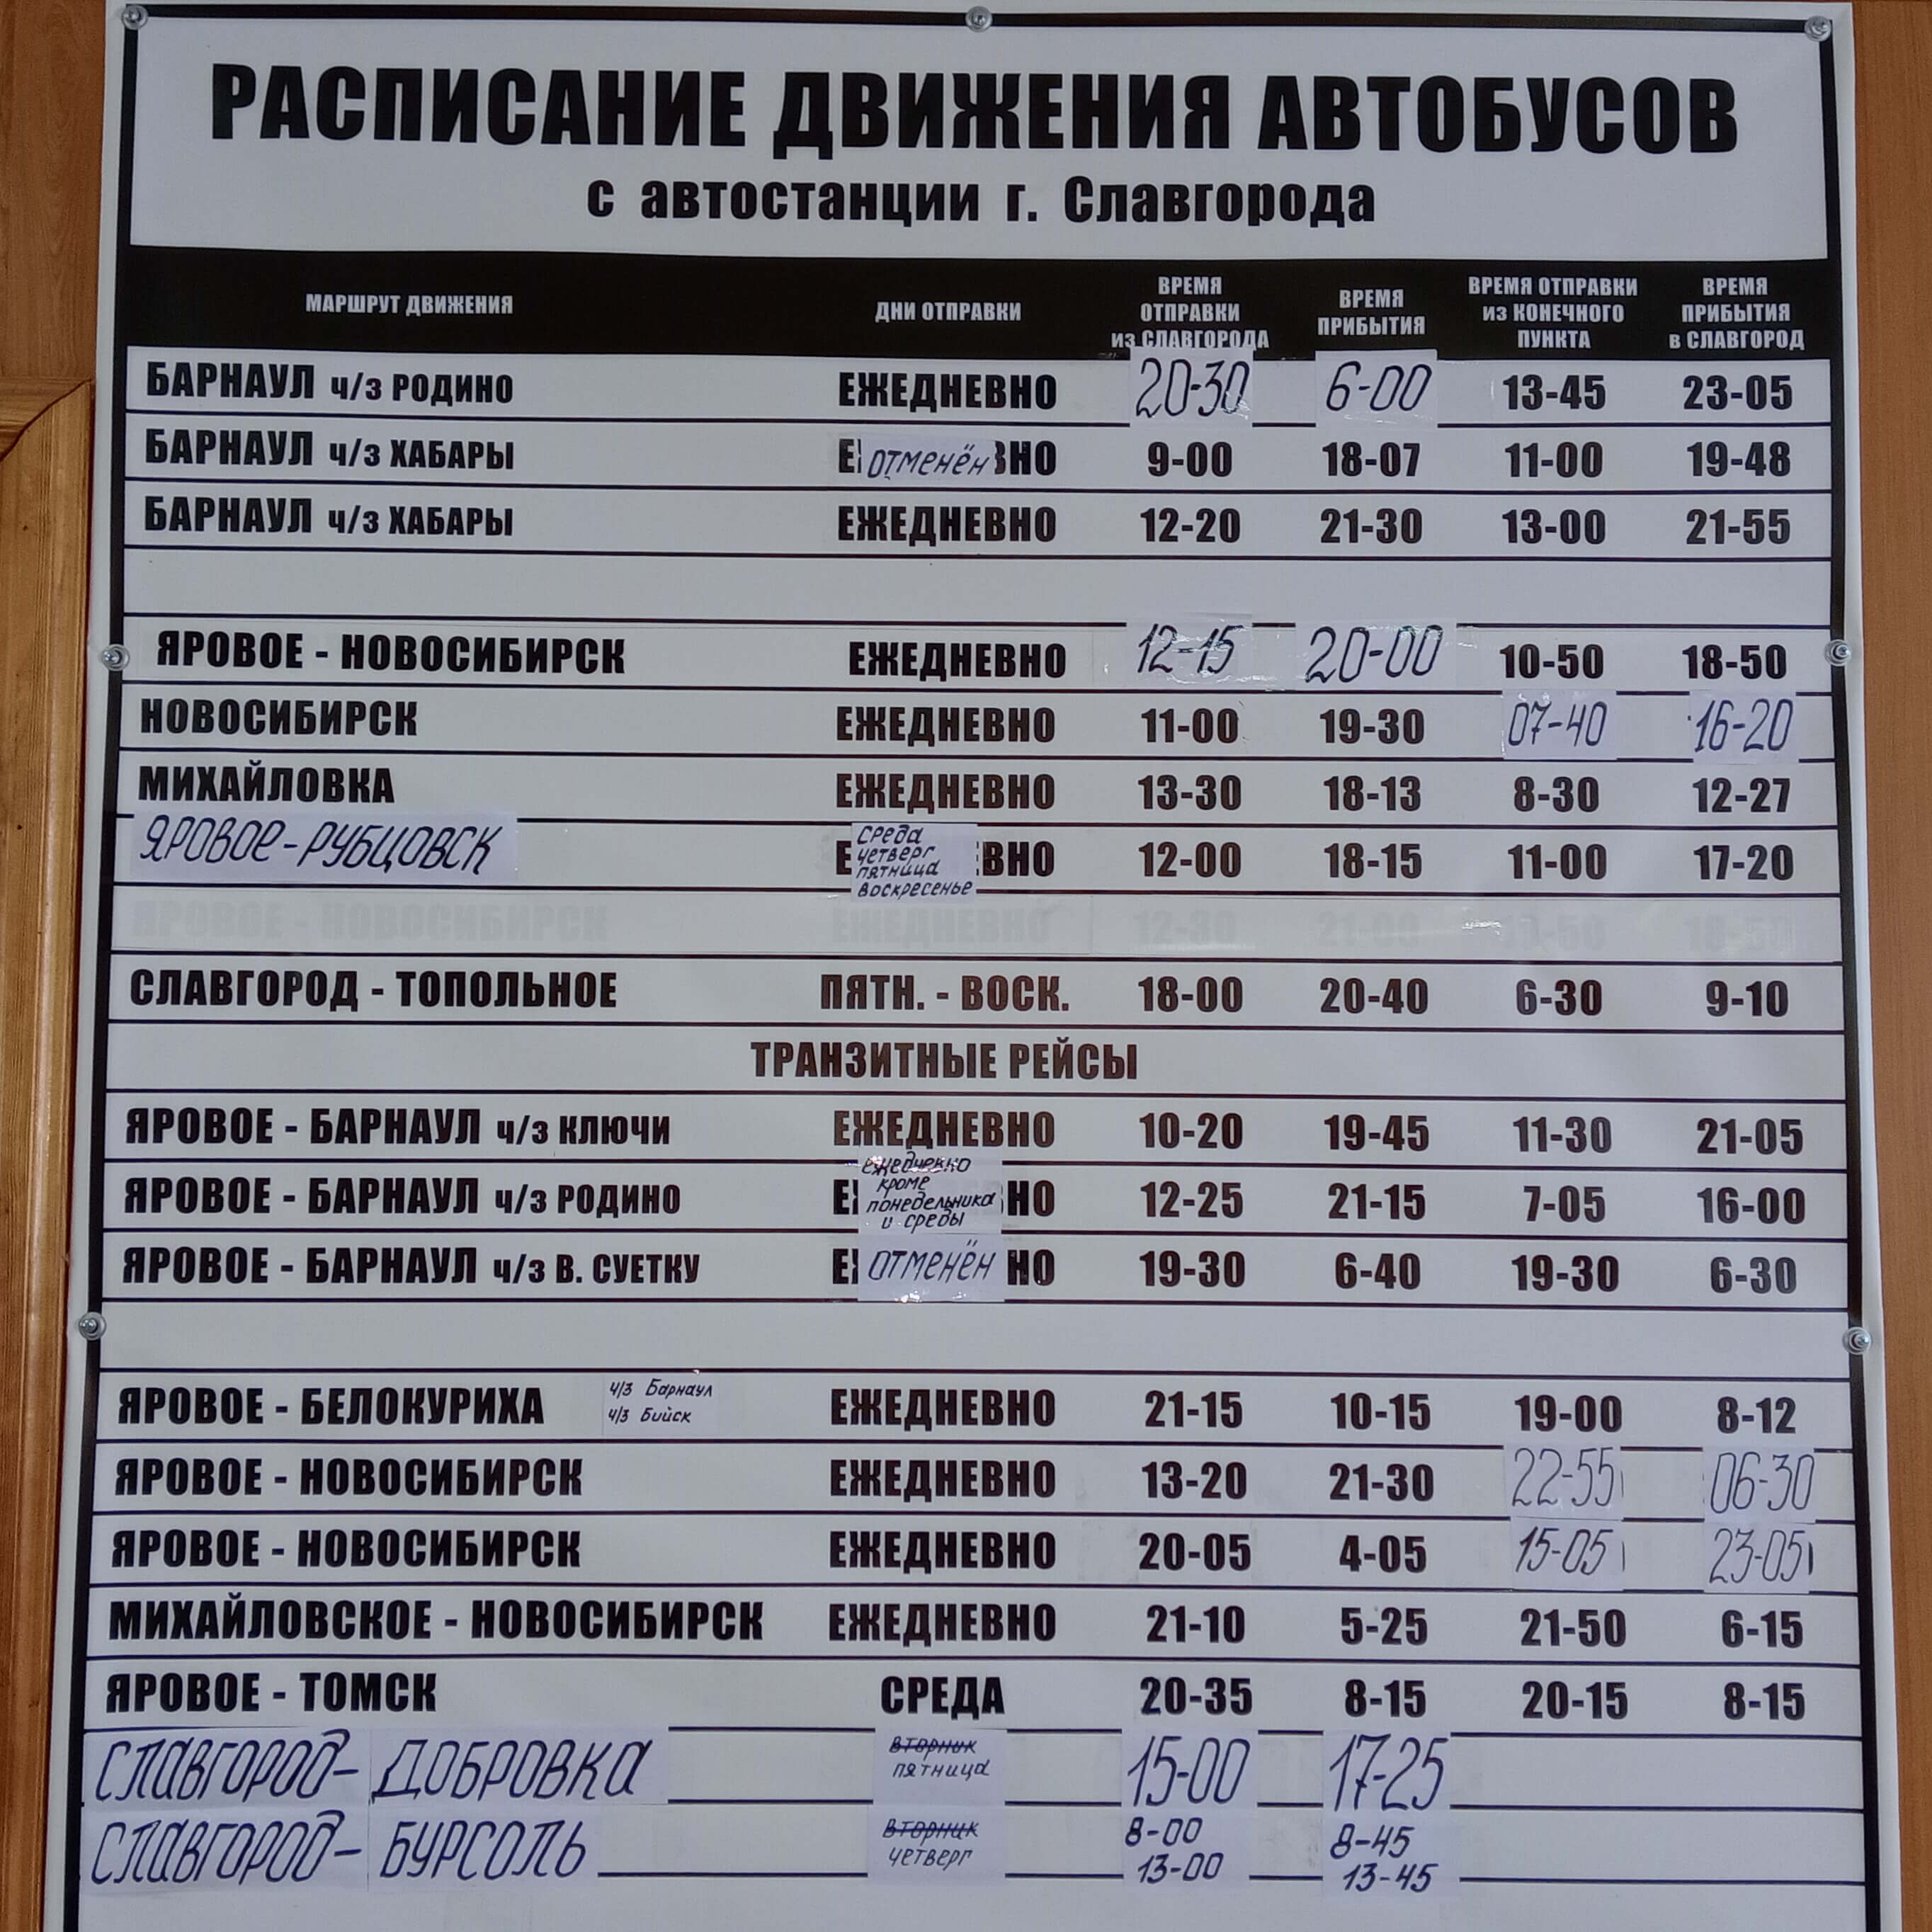 РАСПИСАНИЕ ДВИЖЕНИЯ АВТОБУСОВ
с автостанции г. Славгорода
МАРШРУТ ДВИЖЕНИЯ ДНИ ОТПРАВКИ ВРЕМЯ ОТПРАВКИ из СЛАВГОРОДА ВРЕМЯ ПРИБЫТИЯ ВРЕМЯ ОТПРАВКИ из КОНЕЧНОГО ПУНКТА ВРЕМЯ ПРИБЫТИЯ в СЛАВГОРОД
БАРНАУЛ ч/з РОДИНО ЕЖЕДНЕВНО 20-30 6-00 13-45 23-05
БАРНАУЛ ч/з ХАБАРЫ отменён 9-00 18-07 11-00 19-48
БАРНАУЛ ч/з ХАБАРЫ ЕЖЕДНЕВНО 12-20 21-30 13-00 21-55
ЯРОВОЕ - НОВОСИБИРСК ЕЖЕДНЕВНО 12-15 20-00 10-50 18-50
НОВОСИБИРСК ЕЖЕДНЕВНО 11-00 19-30 07-40 16-20
МИХАЙЛОВКА ЕЖЕДНЕВНО 13-30 18-13 8-30 12-27
ЯРОВОЕ-РУБЦОВСК среда четверг пятница воскресенье 12-00 18-15 11-00 17-20
ЯРОВОЕ - НОВОСИБИРСК ЕЖЕДНЕВНО 12-30 21-00 18-50
СЛАВГОРОД - ТОПОЛЬНОЕ ПЯТН. - ВОСК. 18-00 20-40 6-30 9-10
ТРАНЗИТНЫЕ РЕЙСЫ
ЯРОВОЕ - БАРНАУЛ ч/з КЛЮЧИ ЕЖЕДНЕВНО 10-20 19-45 11-30 21-05
ЯРОВОЕ - БАРНАУЛ ч/з РОДИНО ежедневно кроме понедельника и среды 12-25 21-15 7-05 16-00
ЯРОВОЕ - БАРНАУЛ ч/з В. СУЕТКУ отменён 19-30 6-40 19-30 6-30
ЯРОВОЕ - БЕЛОКУРИХА ч/з Барнаул ч/з Бийск ЕЖЕДНЕВНО 21-15 10-15 19-00 8-12
ЯРОВОЕ - НОВОСИБИРСК ЕЖЕДНЕВНО 13-20 21-30 22-55 06-30
ЯРОВОЕ - НОВОСИБИРСК ЕЖЕДНЕВНО 20-05 4-05 15-05 23-05
МИХАЙЛОВСКОЕ - НОВОСИБИРСК ЕЖЕДНЕВНО 21-10 5-25 21-50 6-15
ЯРОВОЕ - ТОМСК СРЕДА 20-35 8-15 20-15 8-15
СЛАВГОРОД- ДОБРОВКА вторник пятница 15-00 17-25
СЛАВГОРОД- БУРСОЛЬ вторник четверг 8-00 13-00 8-45 13-45